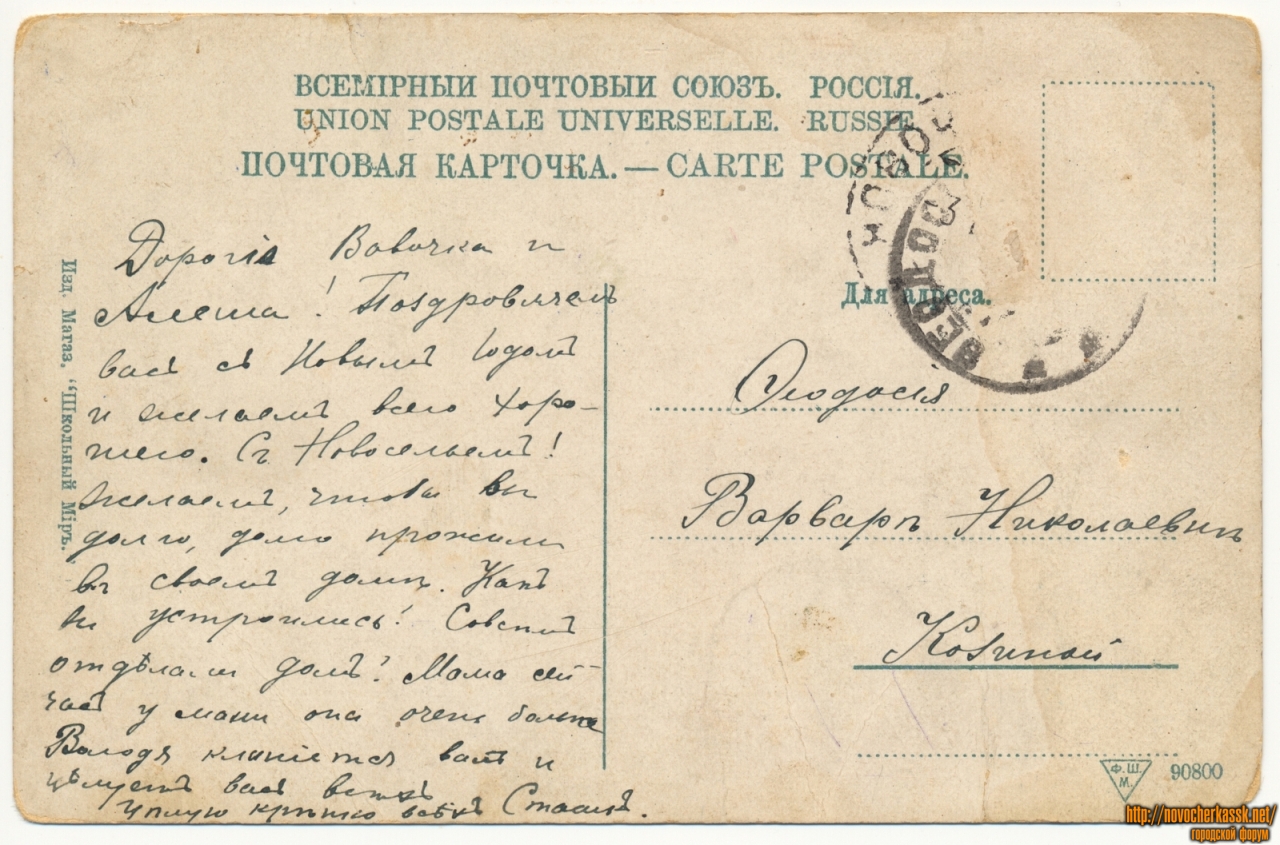 ВСЕМІРНЫЙ ПОЧТОВЫЙ СОЮЗЪ. РОССІЯ.
UNION POSTALE UNIVERSELLE. RUSSIE.
ПОЧТОВАЯ КАРТОЧКА. — CARTE POSTALE.
Изд. Магаз. "Школьный Міръ."
Дорогіе Вавочка и
Алеша! Поздровлчемъ
васъ съ Новымъ Годомъ
и желаемъ всего хоро-
шего. Съ Новосельемъ!
желаемъ, чтобы вы
долго, долго прожили
въ своемъ домѣ. Какъ
вы устроились? Совсѣмъ
отдѣлали домъ? Мама сей-
часъ у мани она очень больна
Володя кланіется вамъ и
цѣлуетъ васъ всѣхъ
Цѣлую крѣпко всѣхъ
Для адреса.
Ѳеодосія
Варварѣ Николаевнѣ
Козиной
Ф.Ш.
М.
90800
http://novocherkassk.net/
городской форум